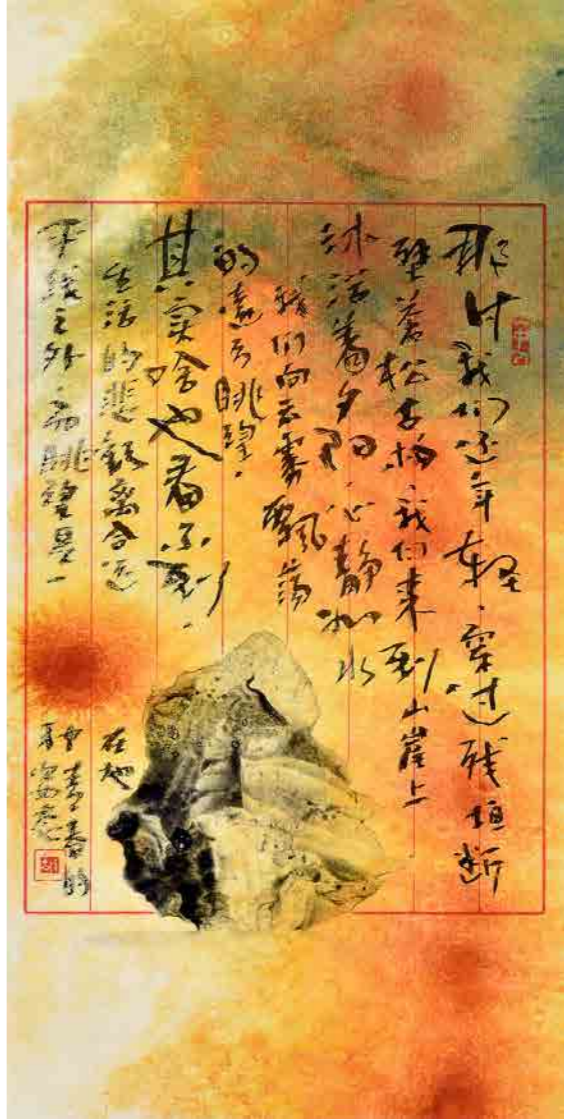 那时我们还年轻、穿过残垣断
壁苍松古柏、我们来到山崖上
沐浴着夕阳、心静如水
我们向云雾飘荡
的远方眺望。
其实啥也看不到。
生活的悲欢离合远
在地
平线之外，而眺望是一
种青春的